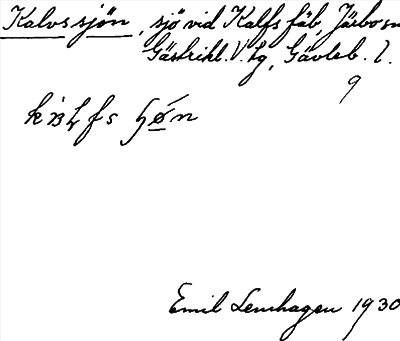 Kalvssjön, sjö vid Kalfs fäb, Järbo sn
Gästrikl. V. hg, Gävleb. l.
9
Emil Lenhagen 1930